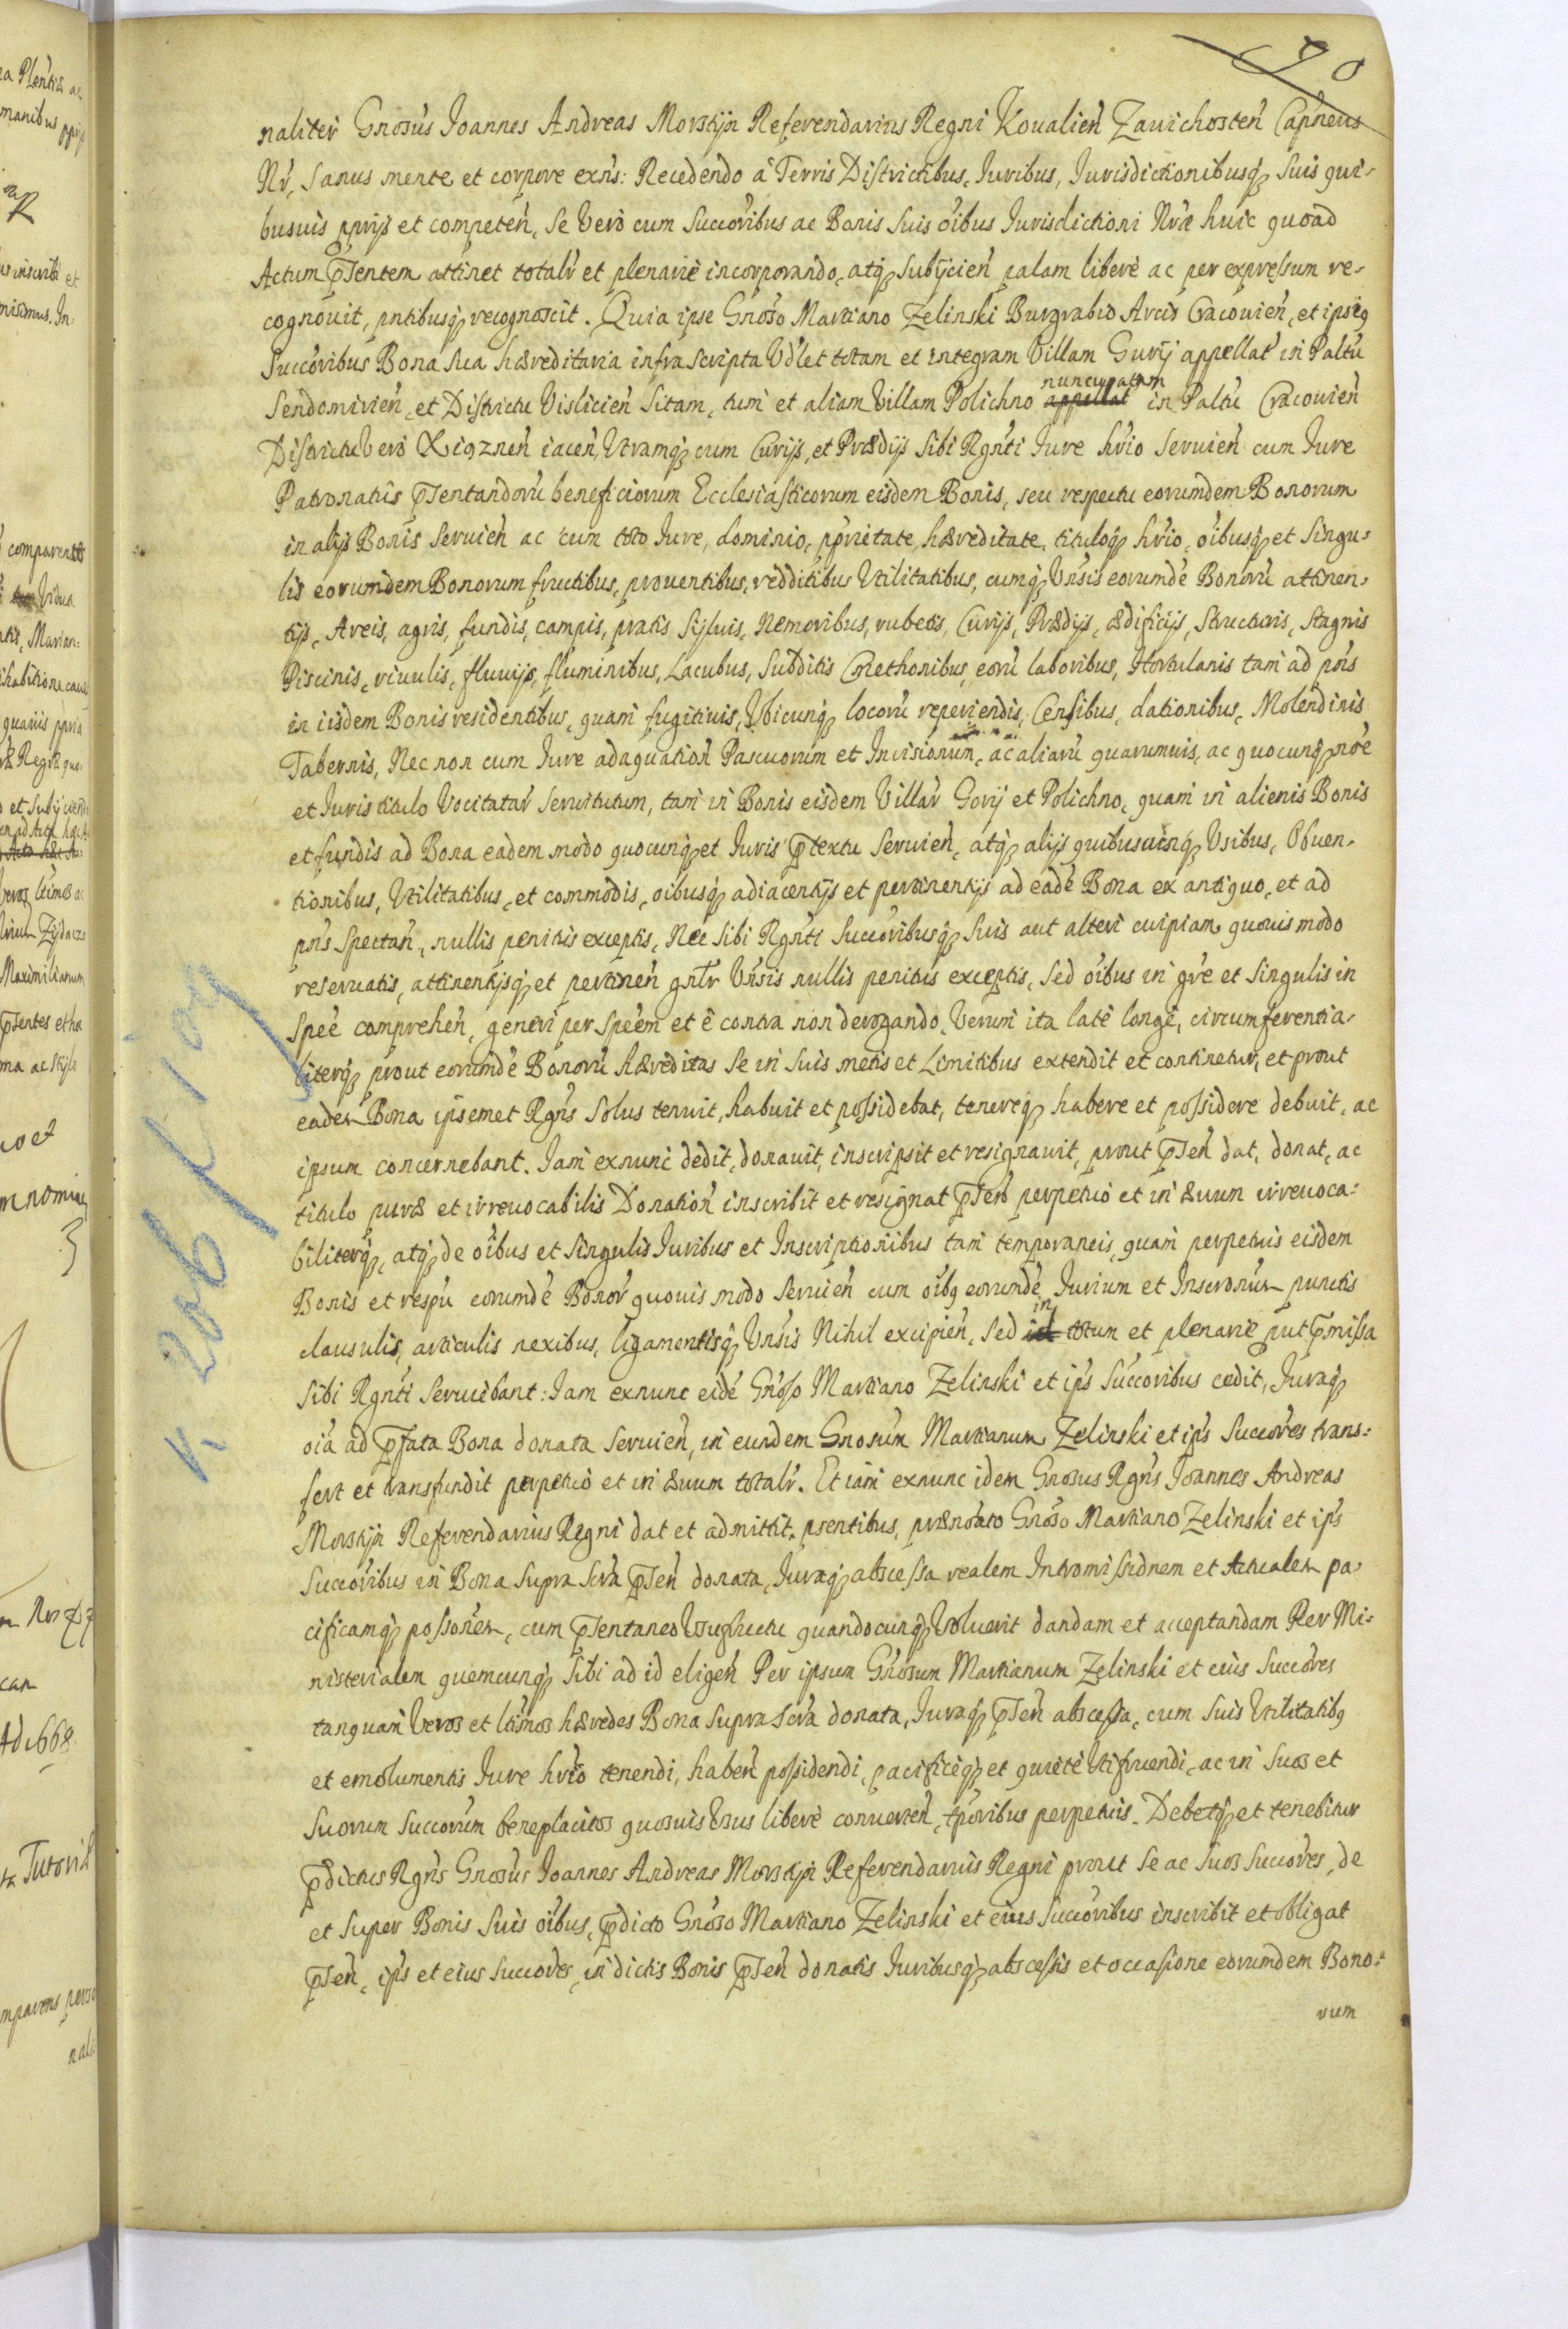 70
naliter Gnosus Joannes Andreas Morstijn Referendarius Regni Koualień Zauichosteń Capneus
Nr, sanus mente et corpore exńs: Recedendo à Terris Districtibus, Iuribus, Iurisdictionibusq suis qui-
busuis pprijs et competeń, se Vero cum Succoribus ac Bonis suis oibus Iurisdictioni Nræ huic quoad
Actum p̄sentem attinet totalr et plenariè incorporando, atq subijcień palam liberè ac per expressum re-
cognouit, pntibusq recognoscit. Quia ipse Gnoso Martiano Zelinski Burgrabio Arcis Cracouień, et ipsig
Succoribus Bona sua hæreditaria infra scripta Vdlet totam et integram Villam Gurij appellat in Paltu
Sendomirień, et Districtu Vislicień sitam, tum et aliam Villam Polichno appellat nuncupatam in Paltu Cracouień
Districtu Vero Xiąznen iaceń, Vtramq cum Curijs, et Prædijs sibi Rgnti Iure hrio seruień cum Iure
Patronatûs p̄sentandoru beneficiorum Ecclesiasticorum eisdem Bonis, seu respectu eorumdem Bonorum
in alijs Bonis seruień ac cum toto Iure, dominio, pprietate, hæreditate, tituloq hrio, oibusq et singu-
lis eorumdem Bonorum fructibus, prouentibus, redditibus Vtilitatibus, cumq Vńsis eorumdē Bonorū attinen-
tijs, Areis, agris, fundis, campis, pratis Syluis, Nemoribus, rubetis, Curijs, Prædijs, ædificijs, structuris, stagnis
Piscinis, riuulis, fluuijs, fluminibus, Lacubus, Subditis Cmethonibus, eorū laboribus, Hortulanis tam ad pns
in iisdem Bonis residentibus, quam fugitiuis, Vbicunq locorū reperiendis, Censibus, dationibus, Molendinis
Tabernis, Nec non cum Iure adaquatioń Pascuorum et Incisionum, ac aliarū quarumuis, ac quocunq noē
et Iuris titulo Vocitatar seruitutum, tam in Bonis eisdem Villar Gorij et Polichno, quam in alienis Bonis
et fundis ad Bona eadem modo quocunq et Iuris p̄textu seruień, atq alijs quibusuisq Vsibus, Obuen-
tionibus, Vtilitatibus, et commodis, oibusq adiacentijs et pertinentijs ad eadē Bona ex antiquo, et ad
pns spectań, nullis penitis exceptis, Nec sibi Rgnti Succoribusq suis aut alteri cuipiam quouis modo
reseruatis, attinentijsq et pertineń gnlr Vńsis nullis penitus exceptis, sed oibus in gre et singulis in
speē compreheń, generi per speem et ê contra non derogando, Verum ita latè longè, circumferentia-
literq prout eorumdē Bonorū hæreditas se in suis metis et Limitibus extendit et continetur, et prout
eadem Bona ipsemet Rgńs solus tenuit, habuit et possidebat, tenereq habere et possidere debuit, ac
ipsum concernebant. Iam exnunc dedit, donauit, inscripsit et resignauit, prout p̄seń dat, donat, ac
titulo puræ et irreuocabilis Donatioń inscribit et resignat p̄seń perpetuò et in æuum irreuoca-
biliterq, atq de oibus et singulis Iuribus et Inscriptionibus tam temporaneis, quam perpetuis eisdem
Bonis et respū eorumdē Bonor quouis modo seruień cum oibg eorundē Iurium et Inscronum punctis
clausulis, articulis nexibus, ligamentisq Vńsis Nihil excipień, sed id in totum et plenariè put p̄missa
sibi Rgnti seruiebant: Iam exnunc eidē Gnoso Martiano Zelinski et ips Succoribus cedit, Iuraq
oia ad p̄fata Bona donata seruień, in eundem Gnosum Martianum Zelinski et ips Succores trans-
fert et transfundit perpetuò et in æuum totalr. Et iam exnunc idem Gnosus Rgńs Joannes Andreas
Morstijn Referendarius Regni dat et admittit psentibus, prænoato Gnoso Martiano Zelinski et ips
Succoribus in Bona supra scra p̄seń donata, Iuraq abscessa realem Intromissionem et Actualem pa-
cificamq possonem, cum p̄sentaneo Vsufructu quandocunq Voluerit dandam et acceptandam Per Mi-
nisterialem quemcunq sibi ad id eligeń Per ipsum Gnosum Martianum Zelinski et eius Succores
tanquam Veros et ltimos hæredes Bona supra scra donata, Iuraq p̄seń abscessa, cum suis Vtilitatibg
et emolumentis Iure hrio tenendi, habeń possidendi, pacificèq et quietè Vtifruendi, ac in suos et
suorum Succorum beneplacitos quosuis Vsus liberè conuerteń, tporibus perpetuis. Debetq et tenebitur
p̄dictus Rgńs Gnosus Joannes Andreas Morstijn Referendarius Regni prout se ac suos Succores, de
et super Bonis suis oibus, p̄dicto Gnoso Martiano Zelinski et eius Succoribus inscribit et obligat
p̄seń, ips et eius Succores, in dictis Bonis p̄seń donatis Iuribusq abscessis et occasione eorumdem Bono-
rum